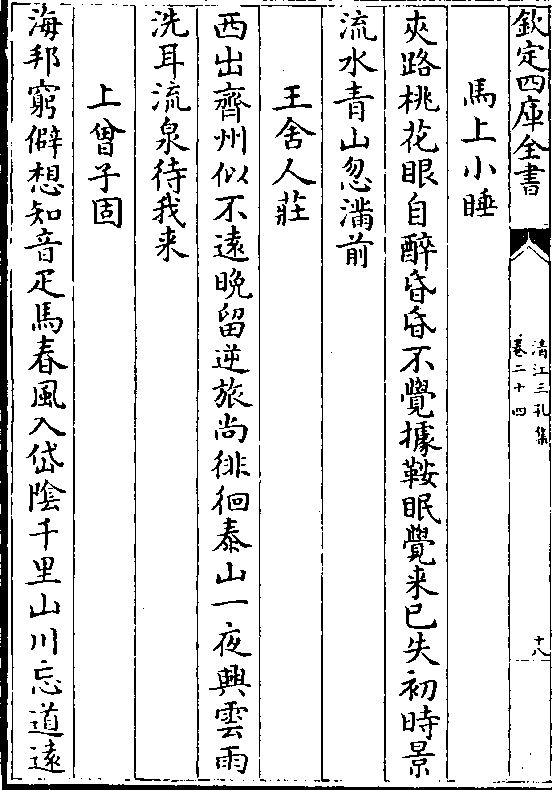 欽定四庫全書
清江三孔集
卷二十四
十八
馬上小睡
夾路桃花眼自醉昏昏不覺據鞍眠覺来已失初時景
流水青山忽滿前
王舍人莊
西出齊州似不遠晚留逆旅尚徘徊泰山一夜興雲雨
洗耳流泉待我来
上曾子固
海邦窮僻想知音疋馬春風入岱隂千里山川忘道逺